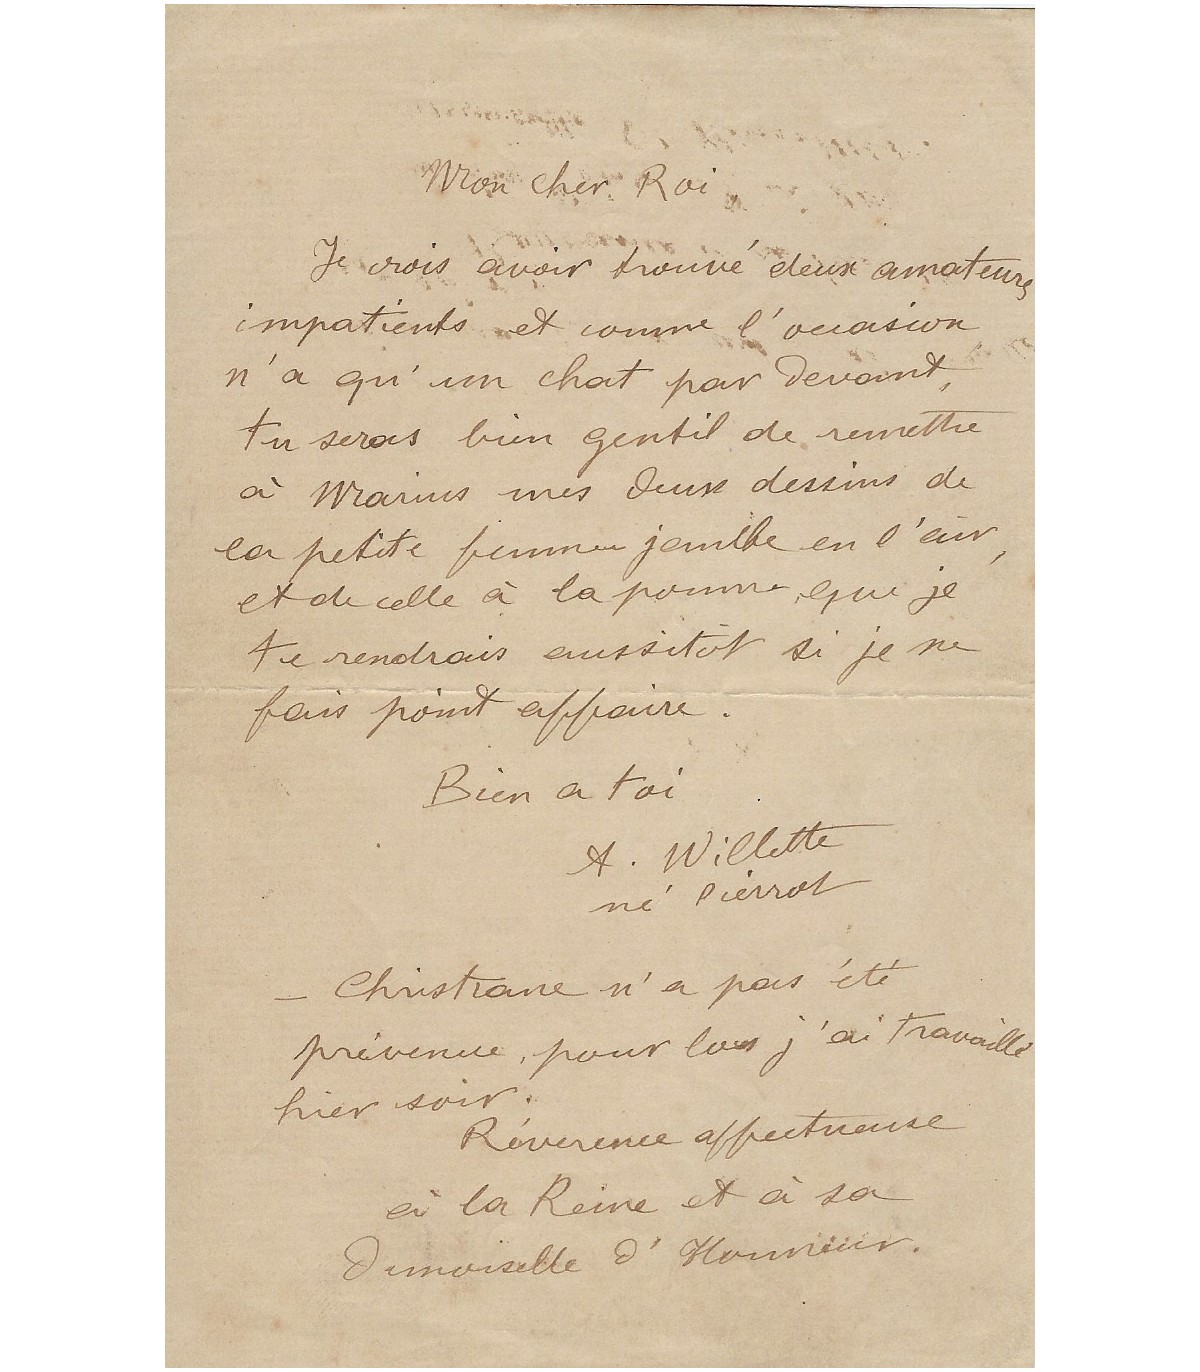 Mon cher Roi,
Je crois avoir trouvé deux amateurs
impatients et comme l'occasion
n'a qu'un chat par devant,
tu seras bien gentil de remettre
à Marius mes deux dessins de
la petite femme jambe en l'air,
et de celle à la pomme, que je
te rendrais aussitôt si je ne
fais point affaire.
Bien a toi
A. Willette
né Pierrot
– Christiane n'a pas été
prévenue, pour lors j'ai travaillé
hier soir.
Réverence affectueuse
à la Reine et à sa
Demoiselle d'Honneur.